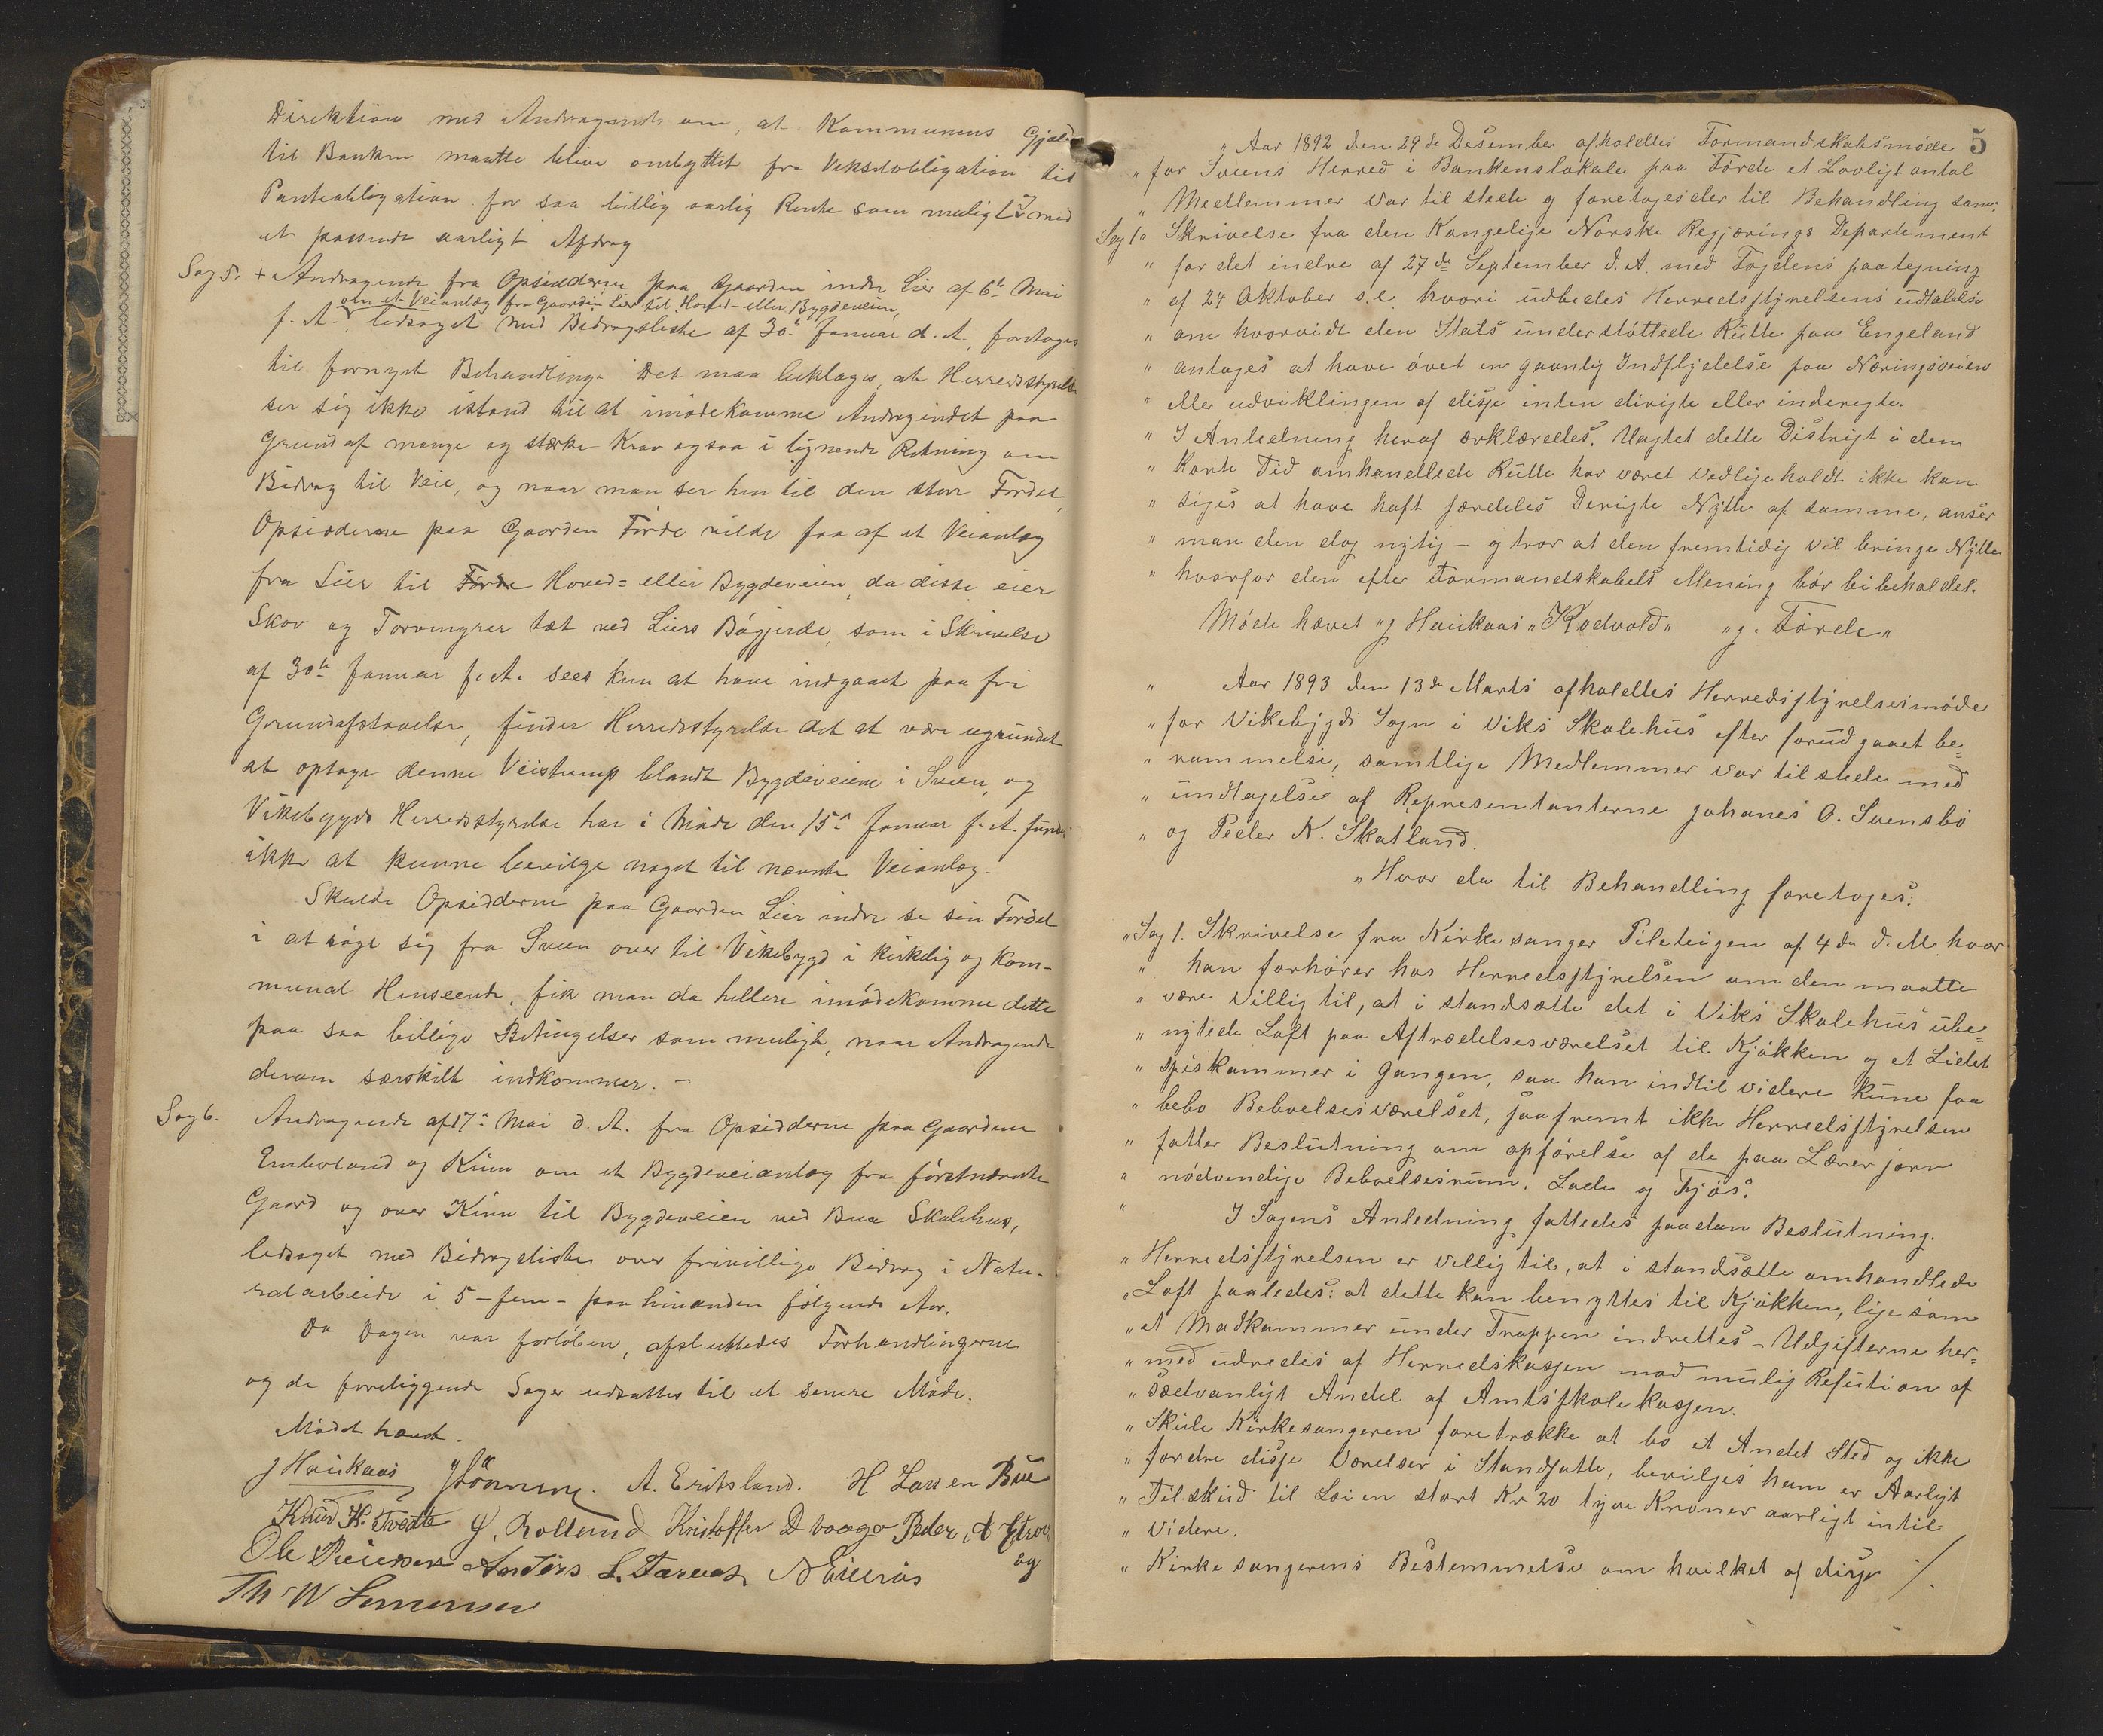 Direktion med Andragende om, at Kommunens Gjæld
til Banken maatte blive ombyttet fra Vekselobligation til
Panteobligation for saa billig aarlig Rente som muligt og med
et passende aarligt Afdrag
Sag 5. + Andragende fra Opsidderne paa Gaarden indre Lier af 6te Mai
om et Veianlæg fra Gaarden Lier til Hoved- eller Bygdeveien,
f. A. ledsaget med Bidragsliste af 30te Januar d. A., foretoges
til fornyet Behandling. Det maa beklages, at Herredsstyrelsen
ser sig ikke istand til at imødekomme Andragendet paa
Grund af mange og stærke Krav ogsaa i lignende Retning om
Bidrag til Veie, og naar man ser hen til den store Fordel,
Opsidderne paa Gaarden Førde vilde faa af et Veianlæg
fra Lier til Førde Hoved- eller Bygdeveien, da disse eier
Skov og Torvmyrer tæt ved Liers Bøgjerde, som i Skrivelse
af 30te Januar f. A. sees kun at have indgaaet paa fri
Grundafstaaelse, finder Herredsstyrelse det at være ugrundet
at optage denne Veistump blandt Bygdeveiene i Sveen, og
Vikebygds Herredsstyrelse har i Møde den 15de Januar f. A. fundet
ikke at kunne bevilge noget til nævnte Veianlæg.
Skulde Opsidderne paa Gaarden Lier indre se sin Fordel
i at søge sig fra Sveen over til Vikebygd i kirkelig og kom-
munal Henseende, fik man da hellere imødekomme dette
paa saa billige Betingelser som muligt, naar Andragende
derom særskilt indkommer. –
Sag 6. Andragende af 17de Mai d. A. fra Opsidderne paa Gaardene
Emberland og Kinn om et Bygdeveianlæg fra førstnævnte
Gaard og over Kinn til Bygdeveien ved Bua Skolehus,
ledsaget med Bidragsliste over frivillige Bidrag i Natu-
ralarbeide i 5 – fem – paa hinanden følgende Aar.
Da Dagen var forløben, afsluttedes Forhandlingerne
og de foreliggende Sager udsattes til et senere Møde.
Mødet hævet.
J Haukaas A. Eritsland. H Larsen Bue
Knud H. Tvedte Rolland Kristoffer D Vaage Peder A
Ole Anders L.
Th W

5
" Aar 1892 den 29de Desember afholdtes Formandskabsmøde
" for Sveens Herred i Bankenslokale paa Førde et Lovligt antal
" Medlemmer var til stede og foretoges der til Behandling som.
Sag 1 " Skrivelse fra den Kongelige Norske Regjærings Departement
" for det indre af 27de September d. A. med Fogdens paategning
" af 24 Oktober s.e. hvori udbedes Herredsstyrelsens udtalelse
" om hvorvidt den Stats understøttede Rutte paa Engeland
" antages at have øvet en gavnlig Indflydelse paa Næringsveiene
" eller udviklingen af disse inten dirigte eller inderegte.
" I Anledning heraf ærklæredes. Uagtet dette Distrigt i den
" Korte Tid omhandlede Rutte har været vedligeholdt ikke kan
" siges at have haft særdeles Derigte Nytte af samme, anser
" man den dog nytig – og tror at den fremtidig vil bringe Nytte
" hvorfor den efter Formandskabets Mening bør bibeholdet.
Møde hævet " J Haukaas " K Rødvold " " J. Førde "
" Aar 1893 den 13de Marts afholdtes Herredsstyrelsesmøde
" for Vikebygds Sogn i Viks Skolehus efter forudgaaet be-
" rammelse, samtlige Medlemmer var tilstede med
" undtagelse af Representanterne Johanes O. Svensbø
" og Peder N. Skatland.
" Hvor da til Behandling foretoges:
" Sag 1. Skrivelse fra Kirkesanger Pileteigen af 4de d. M. hvor
" han forhører hos Herredsstyrelsen om den maatte
" være Villig til, at i standsætte det i Viks Skolehus ube-
" nytede Loft paa Aftrædelsesværelset til Kjøkken og et Lidet
" spiskammer i Gangen, saa han indtil videre kune faa
" bebo Beboelsesværelset, saafremt ikke Herredsstyrelsen
" fatter Beslutning om opførelse af de paa Lærerjorn
" nødvendige Beboelsesrum. Lade og Fjøs.
" I Sagens Anledning fattedes saadan Beslutning.
" Herredsstyrelsen er villig til, at i standsætte omhandlede
" Loft saaledes: at dette kan benyttes til Kjøkken, lige som
" et Madkammer under Trappen indrettes – Udgifterne her-
" med udredes af Herredskassen mod mulig Refution af
" sædvanligt Andel af Amtsskolekassen.
" Skule Kirkesangeren foretrække at bo et Andet Sted og ikke
" fordre disse Værelser i Standsatte, beviljes ham er Aarligt
" Tilskud til Loien stort Kr 20 tyve Kroner aarligt intil
" Videre.
" Kirkesangerens Bestemmelse om hvilket af disse ./.